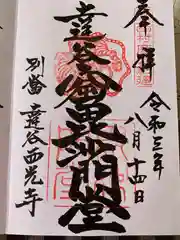 奉拝
令和三年
八月十四日
達谷窟毘沙門堂
別當 達谷西光寺